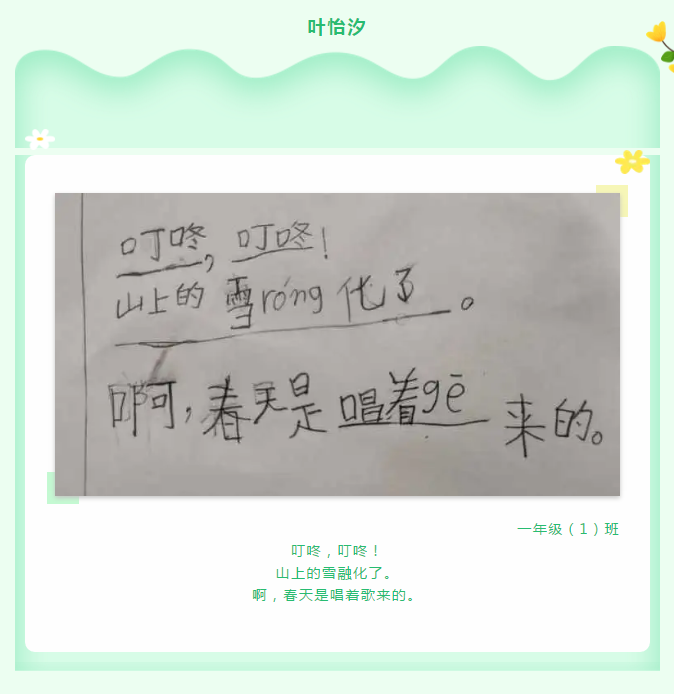 叶怡汐
叮咚，叮咚！
山上的雪róng化了。
啊，春天是唱着gē来的。
一年级（1）班
叮咚，叮咚！
山上的雪融化了。
啊，春天是唱着歌来的。